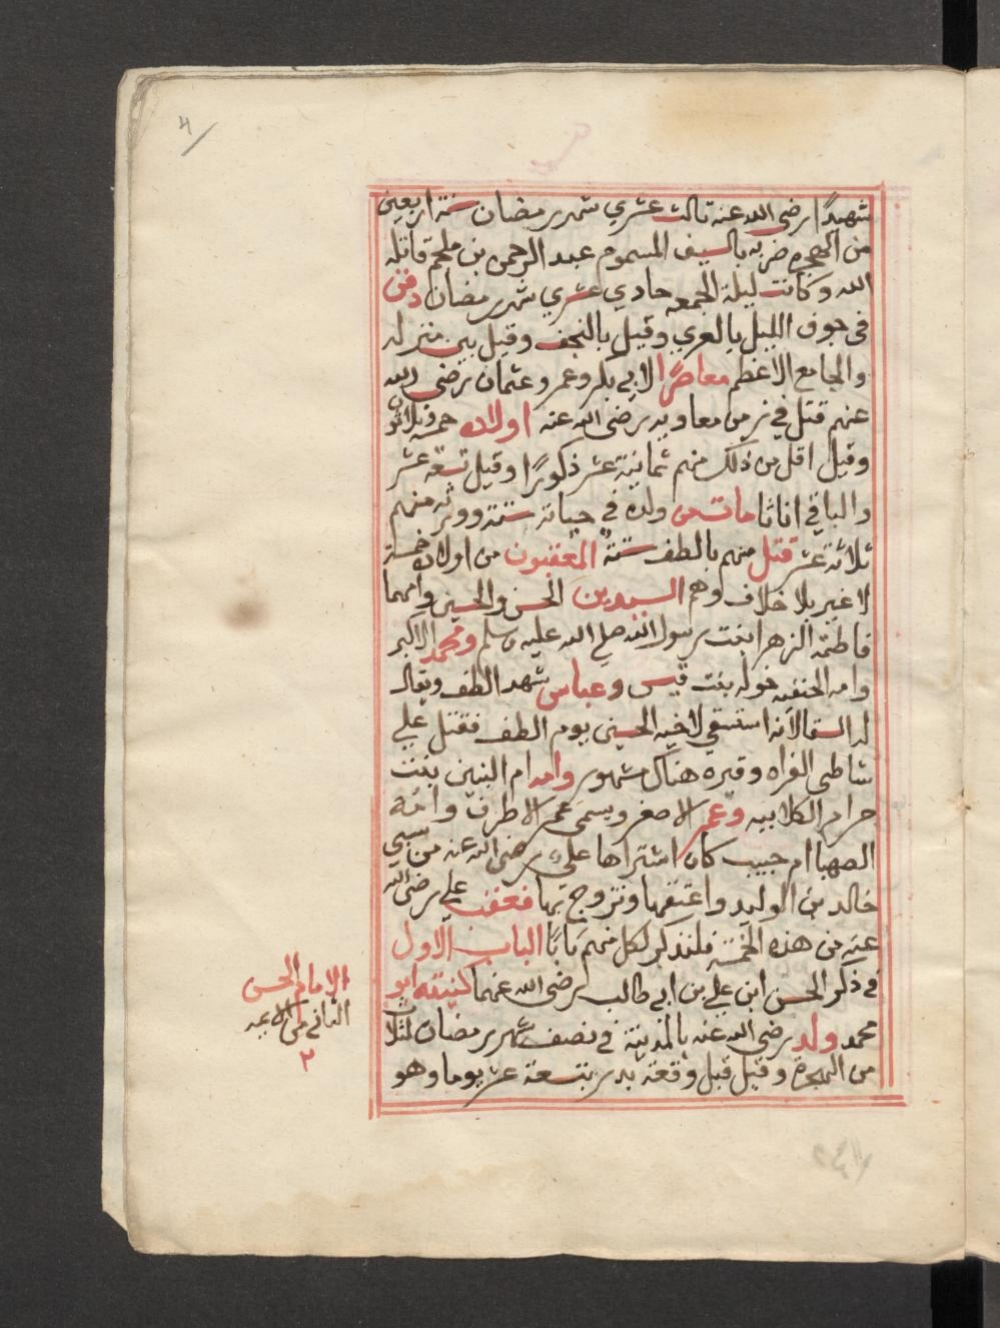 ٤
شهيدًا رضى الله عنه ثالث عشري شهر رمضان سنة اربعين
من الهجره ضربه بالسيف المسموم عبد الرحمن بن ملجم قاتله
الله وكانت ليلة الجمعه حادي عشري شهر رمضان دفن
فى جوف الليل بالغري وقيل بالنجف وقيل بين منزله
والجامع الاعظم معاصرًا لابي بكر وعمر وعثمان رضى الله
عنهم قتل في زمن معاويه رضى الله عنه اولاده خمسة وثلاثون
وقيل اقل من ذلك منهم ثمانية عشر ذكورًا وقيل تسعة عشر
والباقي اناثا مات من ولده في حياته ستة وورثه منهم
ثلاثة عشر قتل منهم بالطف ستة المعقبون من اولاده خمسة
لا غير بلا خلاف وهم السيدين الحسن والحسين وامهما
فاطمة الزهرا بنت رسول الله صلى الله عليه وسلم ومحمد الاكبر
وامه الحنفيه خوله بنت قيس وعباس شهد الطف ويقال
له السقا لانه استسقي لاخيه الحسين يوم الطف فقتل علي
شاطى الفراه وقبره هناك مشهور وامه ام البنين بنت
حرام الكلابيه وعمر الاصغر ويسمى عمر الاطرف وامه
الصهبا ام حبيب كان اشتراها علي رضى الله عنه من سبي
خالد بن الوليد واعتقها وتزوج بها فعقب علي رضى الله
عنه من هذه الخمسة فلنذكر لكل منهم بابًا الباب الاول
في ذكر الحسن ابن علي بن ابي طالب رضى الله عنهما كنيته ابو
محمد ولد رضى الله عنه بالمدينة في نصف شهر رمضان لثلاث
من الهجرة وقيل قبل وقعة بدر بتسعة عشر يوما وهو
الامام الحسن
الثاني من الائمه
٢